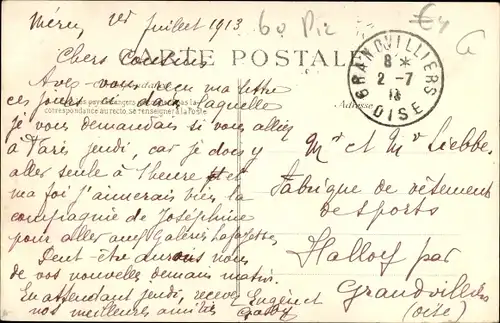 Méru, 1er Juillet 1913
60 Piz
€4
CARTE POSTALE
Chers Cousins
Avez vous reçu ma lettre
ces jours ci dans laquelle
je vous demandais si vous alliez
à Paris jeudi, car je dois y
aller seule à l'heure et
ma foi j'aimerais bien la
compagnie de Joséphine
pour aller aux Galeries Lafayette
Peut-être aurons nous
de vos nouvelles demain matin.
En attendant jeudi, recevez
nos meilleures amitiés
Eugène et
Gaby
correspondance au recto, se renseigner à la Poste
Adresse
GRANDVILLIERS
8 *
2 -7
13
OISE
Mr et Me Liebbe
Fabrique de vêtements
de sports
Halloy par
Grandvilliers
(Oise)